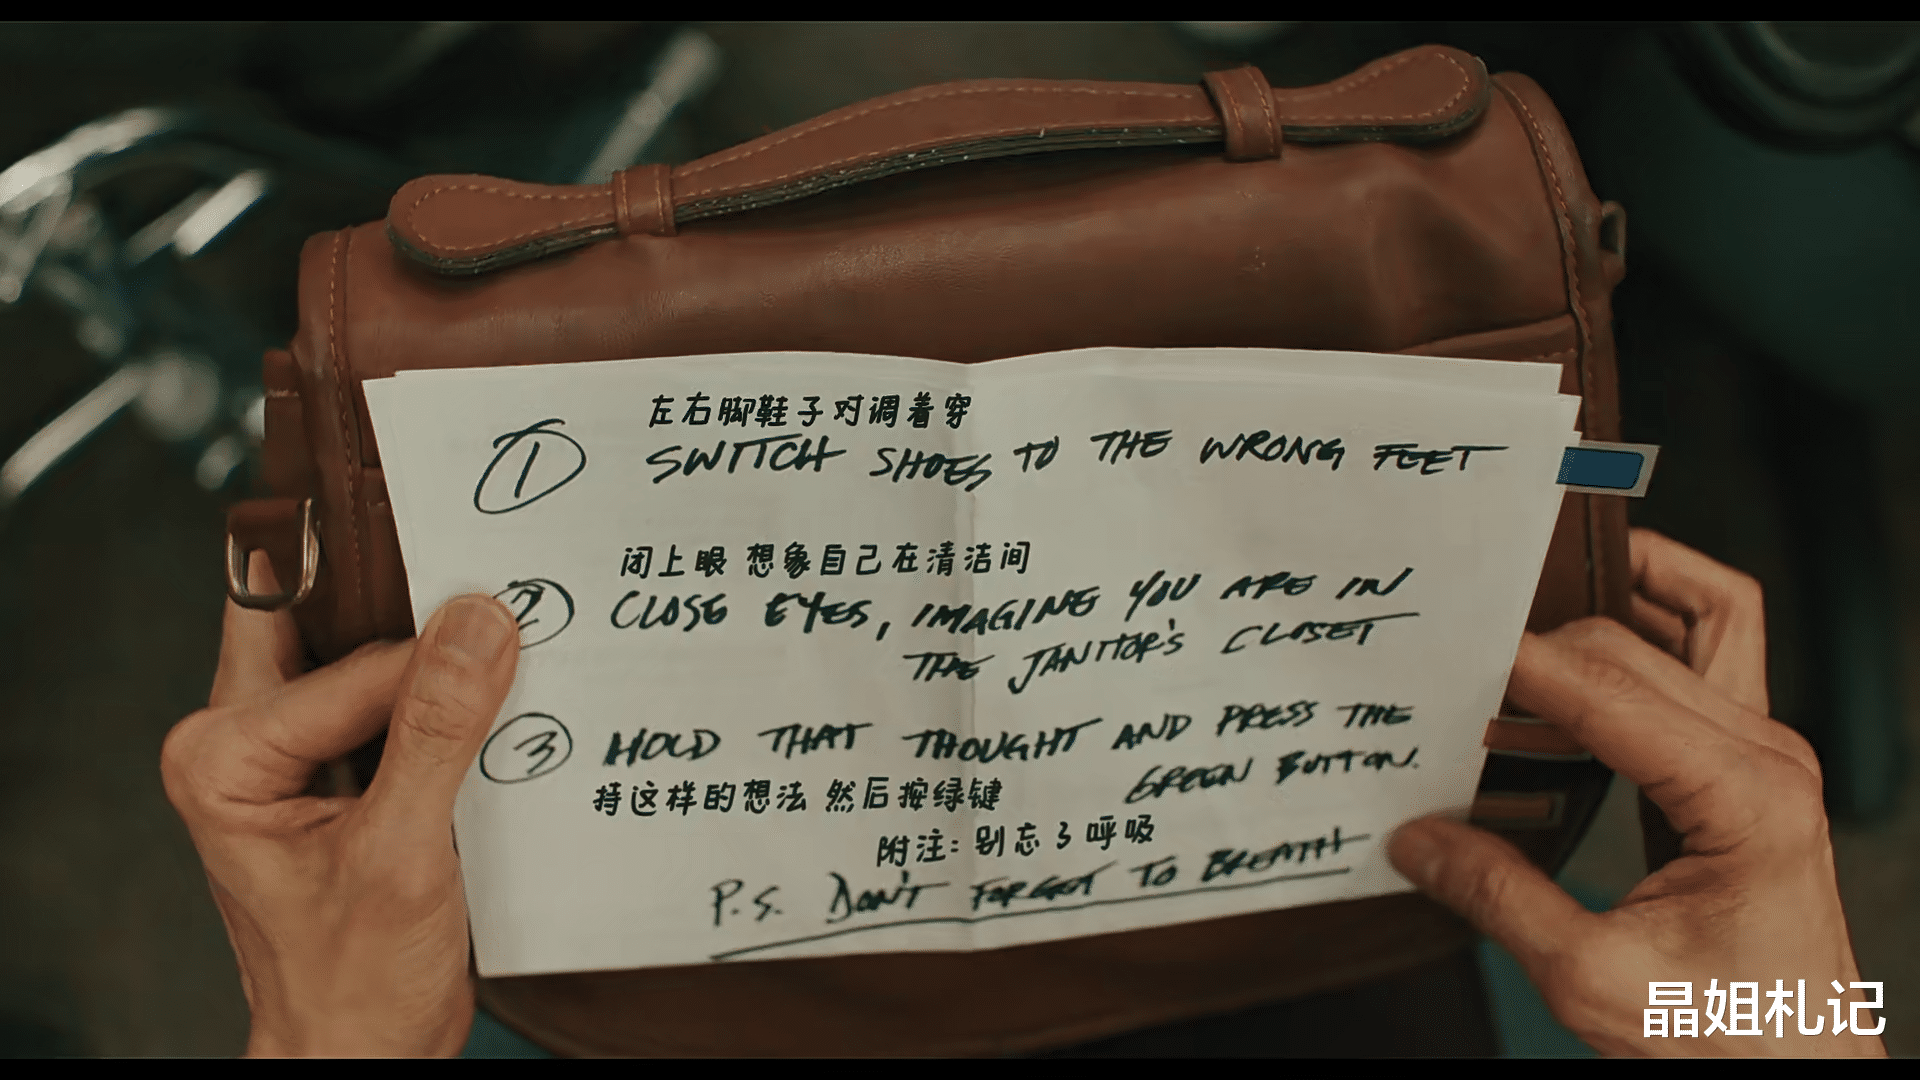 左右脚鞋子对调着穿
① SWITCH SHOES TO THE WRONG FEET
闭上眼 想象自己在清洁间
② CLOSE EYES, IMAGINE YOU ARE IN
THE JANITOR'S CLOSET
③ HOLD THAT THOUGHT AND PRESS THE
GREEN BUTTON.
持这样的想法 然后按绿键
附注: 别忘了呼吸
P.S. DON'T FORGET TO BREATH
晶姐札记